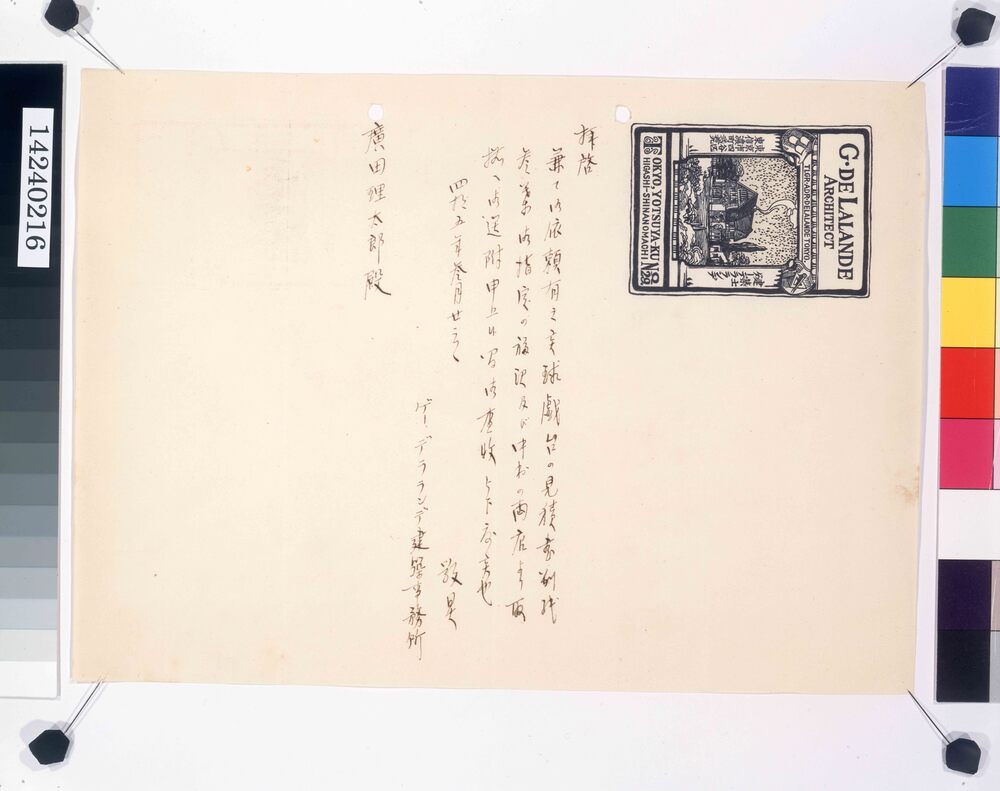 G·DE LALANDE
ARCHITECT
TLGR·ADR·DELALANDE TOKYO
建築士
デラランデ
東京市四谷区
東信濃町
TOKYO, YOTSUYA-KU
HIGASHI-SHINANOMACHI
No 28
拝啓
兼て御依頼有之候球戯台の見積書別紙
御指定の福沢及び中村の両店より取
揃へ御送附申上候間御査収被下度候也
敬具
四拾五年参月廿二日
ゲー、デラランデ建築事務所
廣田理太郎殿
14240216